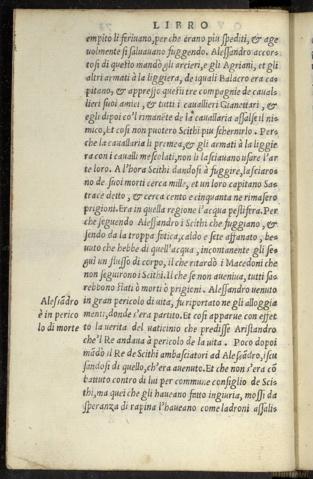 LIBRO
empito li feriuano, per che erano piu spediti, & age
uolmente si saluauano fuggendo. Alessandro accor=
tosi di questo mandò gli arcieri, e gli Agriani, et gli
altri armati à la liggiera, de iquali Balacro era ca=
pitano, & appresso questi tre compagnie de caual=
lieri suoi amici, & tutti i cauallieri Gianettari, &
egli dipoi co'l rimanẽte de la cauallaria assalse il ni=
mico, Et cosi non puotero Scithi piu schernirlo. Per=
che la cauallaria li premea, & gli armati à la liggie
ra con i caualli mescolati, non li lasciauano usare l'ar
te loro. A l'hora Scithi dandosi à fuggire, lasciaro=
no de suoi morti cerca mille, et un loro capitano Sa=
trace detto, & cerca cento e cinquanta ne rimasero
prigioni. Era in quella regione l'acqua pestifera. Per
che seguendo Alessandro i Scithi che fuggiano, &
sendo da la troppa fatica, caldo e sete affanato, be=
uuto che hebbe di quell'acqua, incontanente gli se=
guì un flusso di corpo, il che ritardò i Macedoni che
non seguirono i Scithi. Il che se non aueniua, tutti sa=
rebbono stati ò morti ò prigioni. Alessandro uenuto
in gran pericolo di uita, fu riportato ne gli alloggia
menti, donde s'era partuto. Et cosi apparue con effet
to la uerita del uaticinio che predisse Aristandro
che'l Re andaua à pericolo de la uita. Poco dopoi
mãdò il Re de Scithi ambasciatori ad Alesãdro, iscu
sandosi di quello, ch'era auenuto. Et che non s'era cõ
battuto contro di lui per commune consiglio de Sci=
thi, ma quei che gli haueano fatto ingiuria, mossi da
speranza di rapina l'haueano come ladroni assalis
Alesãdro
è in perico
lo di morte